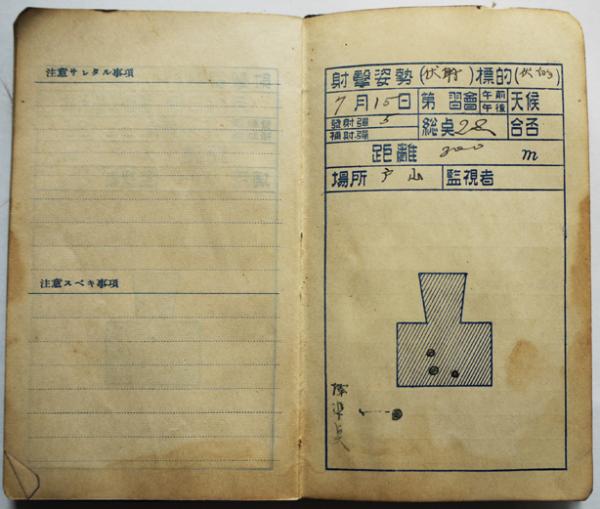 注意サレタル事項
注意スベキ事項
射撃姿勢(伏射)標的(伏的)
7月15日 第 習會 午前 午後 天候
發射弾 5 補射弾 総点 28 合否
距離 300 m
場所 戸山 監視者